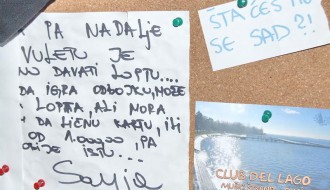 PA NADALJE
VULETU JE
NO DAVATI LOPTU....
DA IGRA ODBOJKU, MOŽE
LOPTA, ALI MORA
DA LIČNU KARTU, ILI
OD 1.000,00, PA
ISTO...
Sanja
ŠTA ĆEŠ MU
SE SAD?!
CLUB DEL LAGO